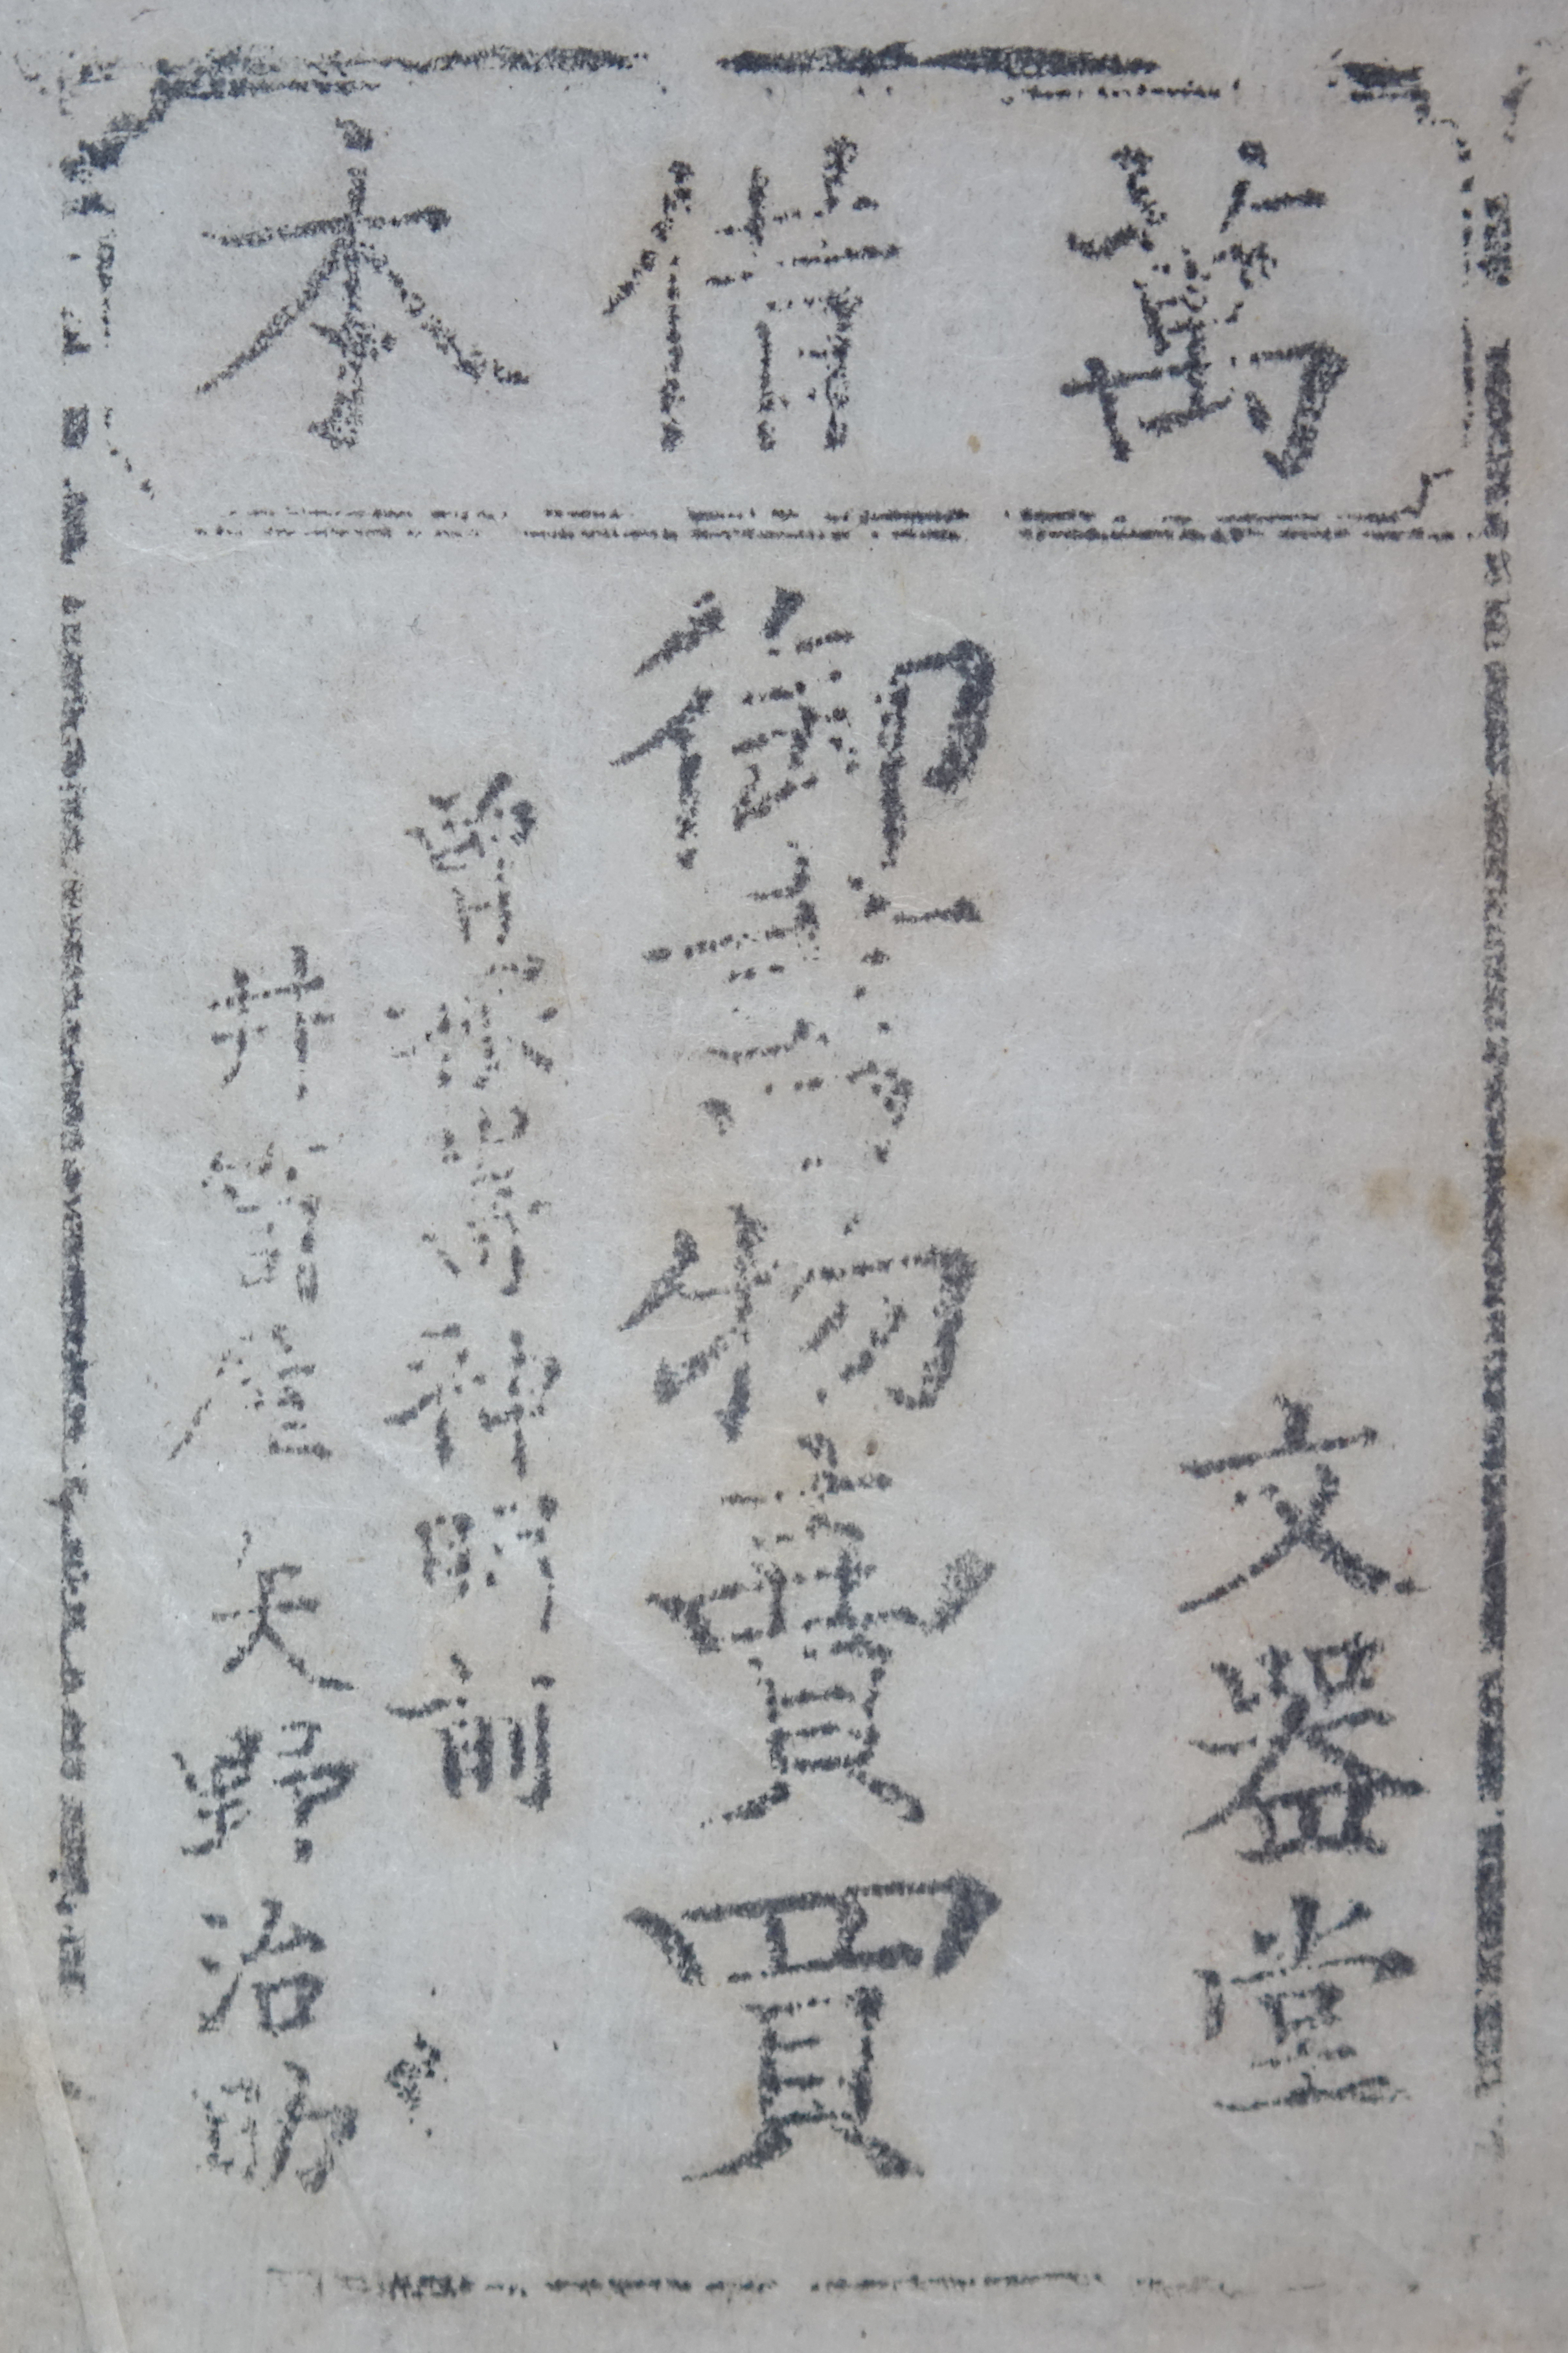 萬借本
文器堂
御物賣買
曾根嵜神明前
井筒屋 矢野治助